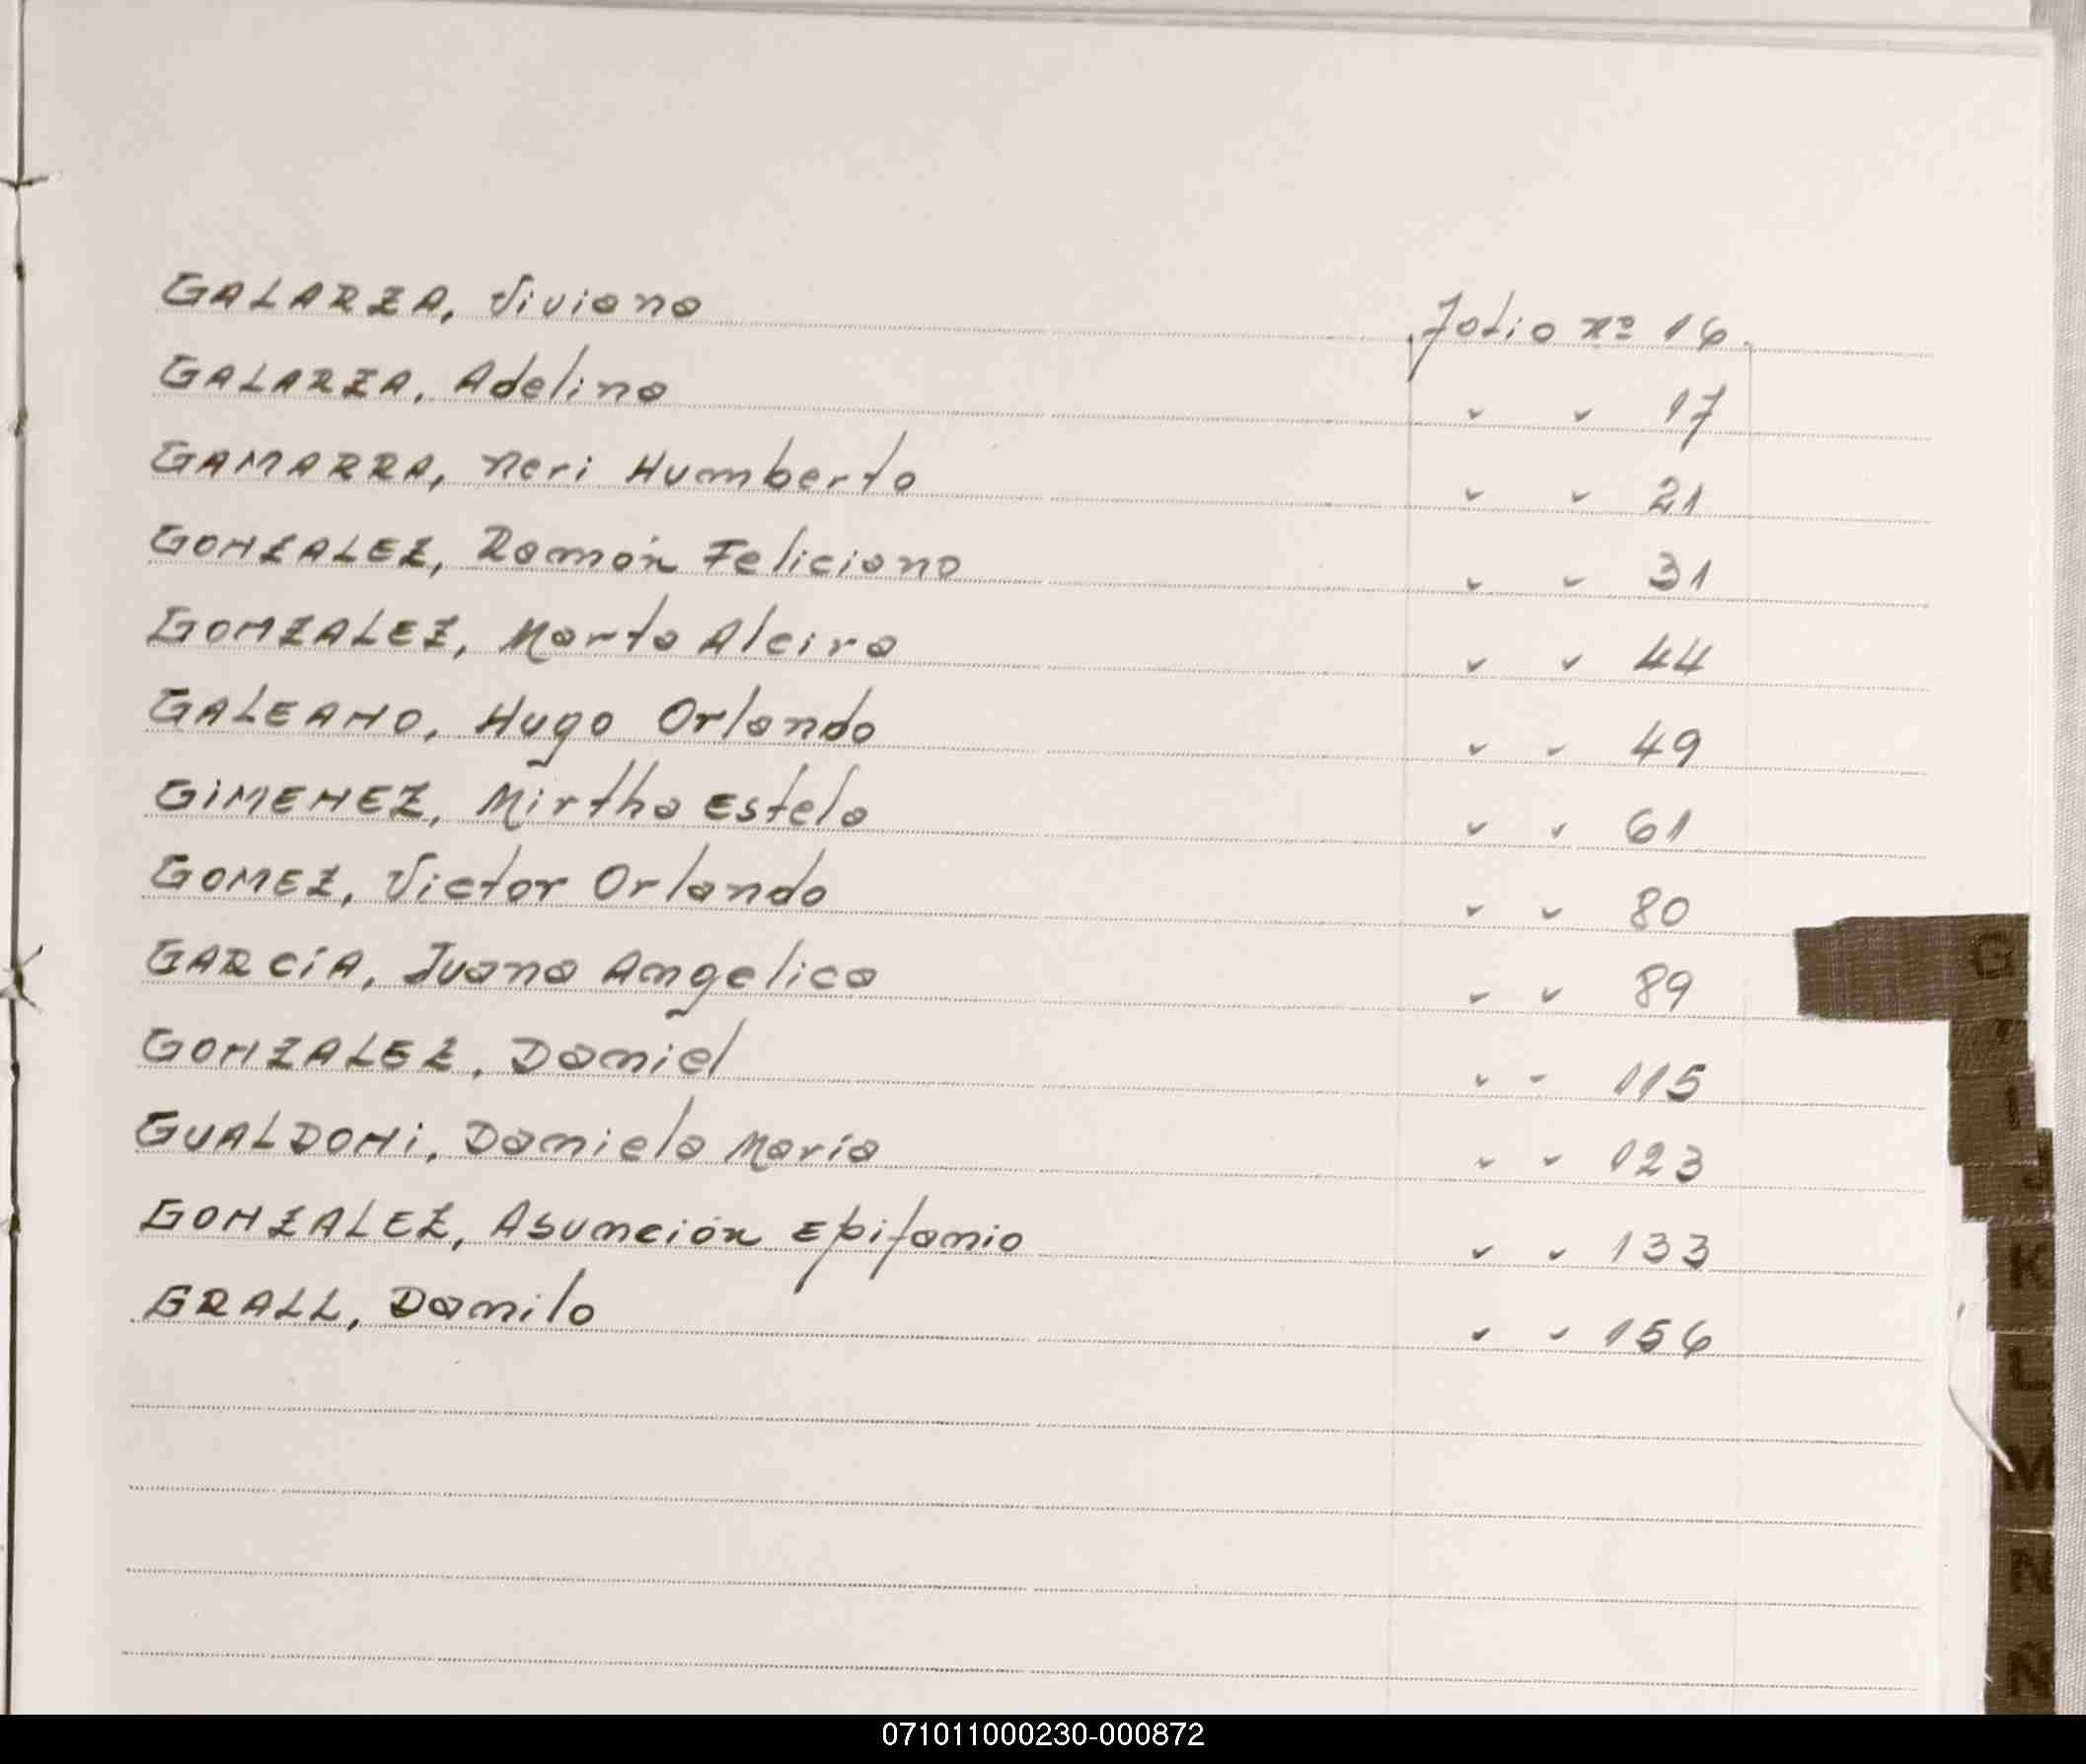 GALARZA, Viviana Folio nº 16.
GALARZA, Adelina " " 17
GAMARRA, Neri Humberto " " 21
GONZALEZ, Ramón Feliciano " " 31
GONZALEZ, Marta Alcira " " 44
GALEANO, Hugo Orlando " " 49
GIMENEZ, Mirtha Estela " " 61
GOMEZ, Victor Orlando " " 80
GARCÍA, Juana Angelica " " 89
GONZALEZ, Daniel " " 115
GUALDONI, Daniela María " " 123
GONZALEZ, Asunción Epifanio " " 133
GRALL, Danilo " " 156
G
I
J
K
L
M
N
Ñ
071011000230-000872